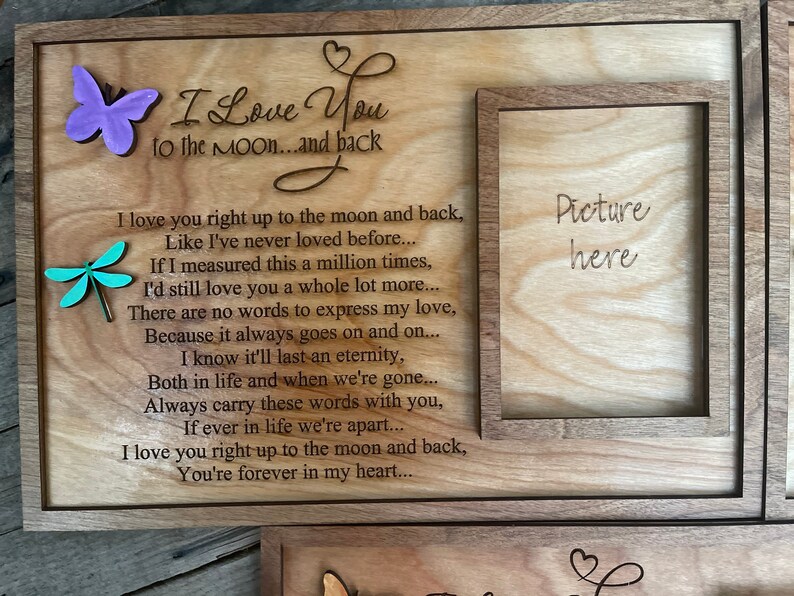 I Love You
to the moon...and back
I love you right up to the moon and back,
Like I've never loved before...
If I measured this a million times,
I'd still love you a whole lot more...
There are no words to express my love,
Because it always goes on and on...
I know it'll last an eternity,
Both in life and when we're gone...
Always carry these words with you,
If ever in life we're apart...
I love you right up to the moon and back,
You're forever in my heart...
Picture
here